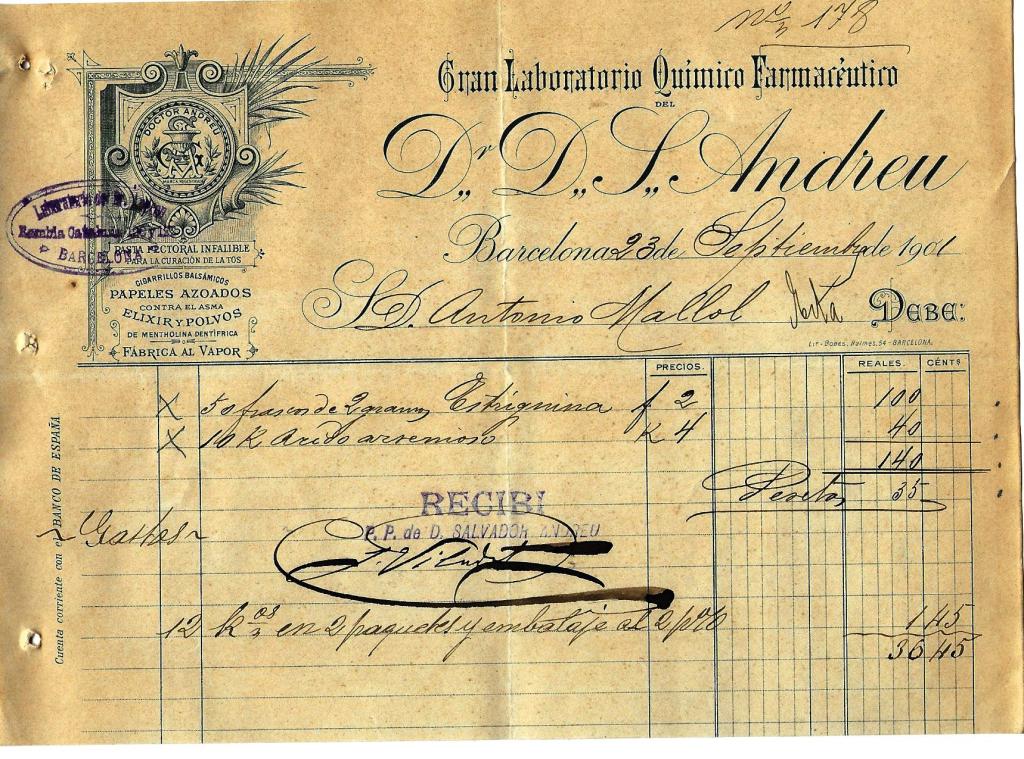 nº 178
Gran Laboratorio Químico Farmacéutico
DEL
Dr. D. S. Andreu
Barcelona 23 de Septiembre de 1901
S. D. Antonio Mallol
DEBE:
Lit-Bobes, Balmes, 54-BARCELONA.
DOCTOR ANDREU
MARCA REGISTRADA
BARCELONA
PASTA PECTORAL INFALIBLE
PARA LA CURACIÓN DE LA TOS
CIGARRILLOS BALSÁMICOS
PAPELES AZOADOS
CONTRA EL ASMA
ELIXIR Y POLVOS
DE MENTHOLINA DENTÍFRICA
FÁBRICA AL VAPOR
PRECIOS. REALES. CÉNTS
X 50 frascos de 2 gramos Estrignina f 2 100
X 10 K Acido arsenioso K 4 40
140
Pesetas 35
RECIBI
P. P. de D. SALVADOR ANDREU
Gastos
12 kos en 2 paquetes y embalaje al 2 p% 1 45
36 45
Cuenta corriente con el BANCO DE ESPAÑA